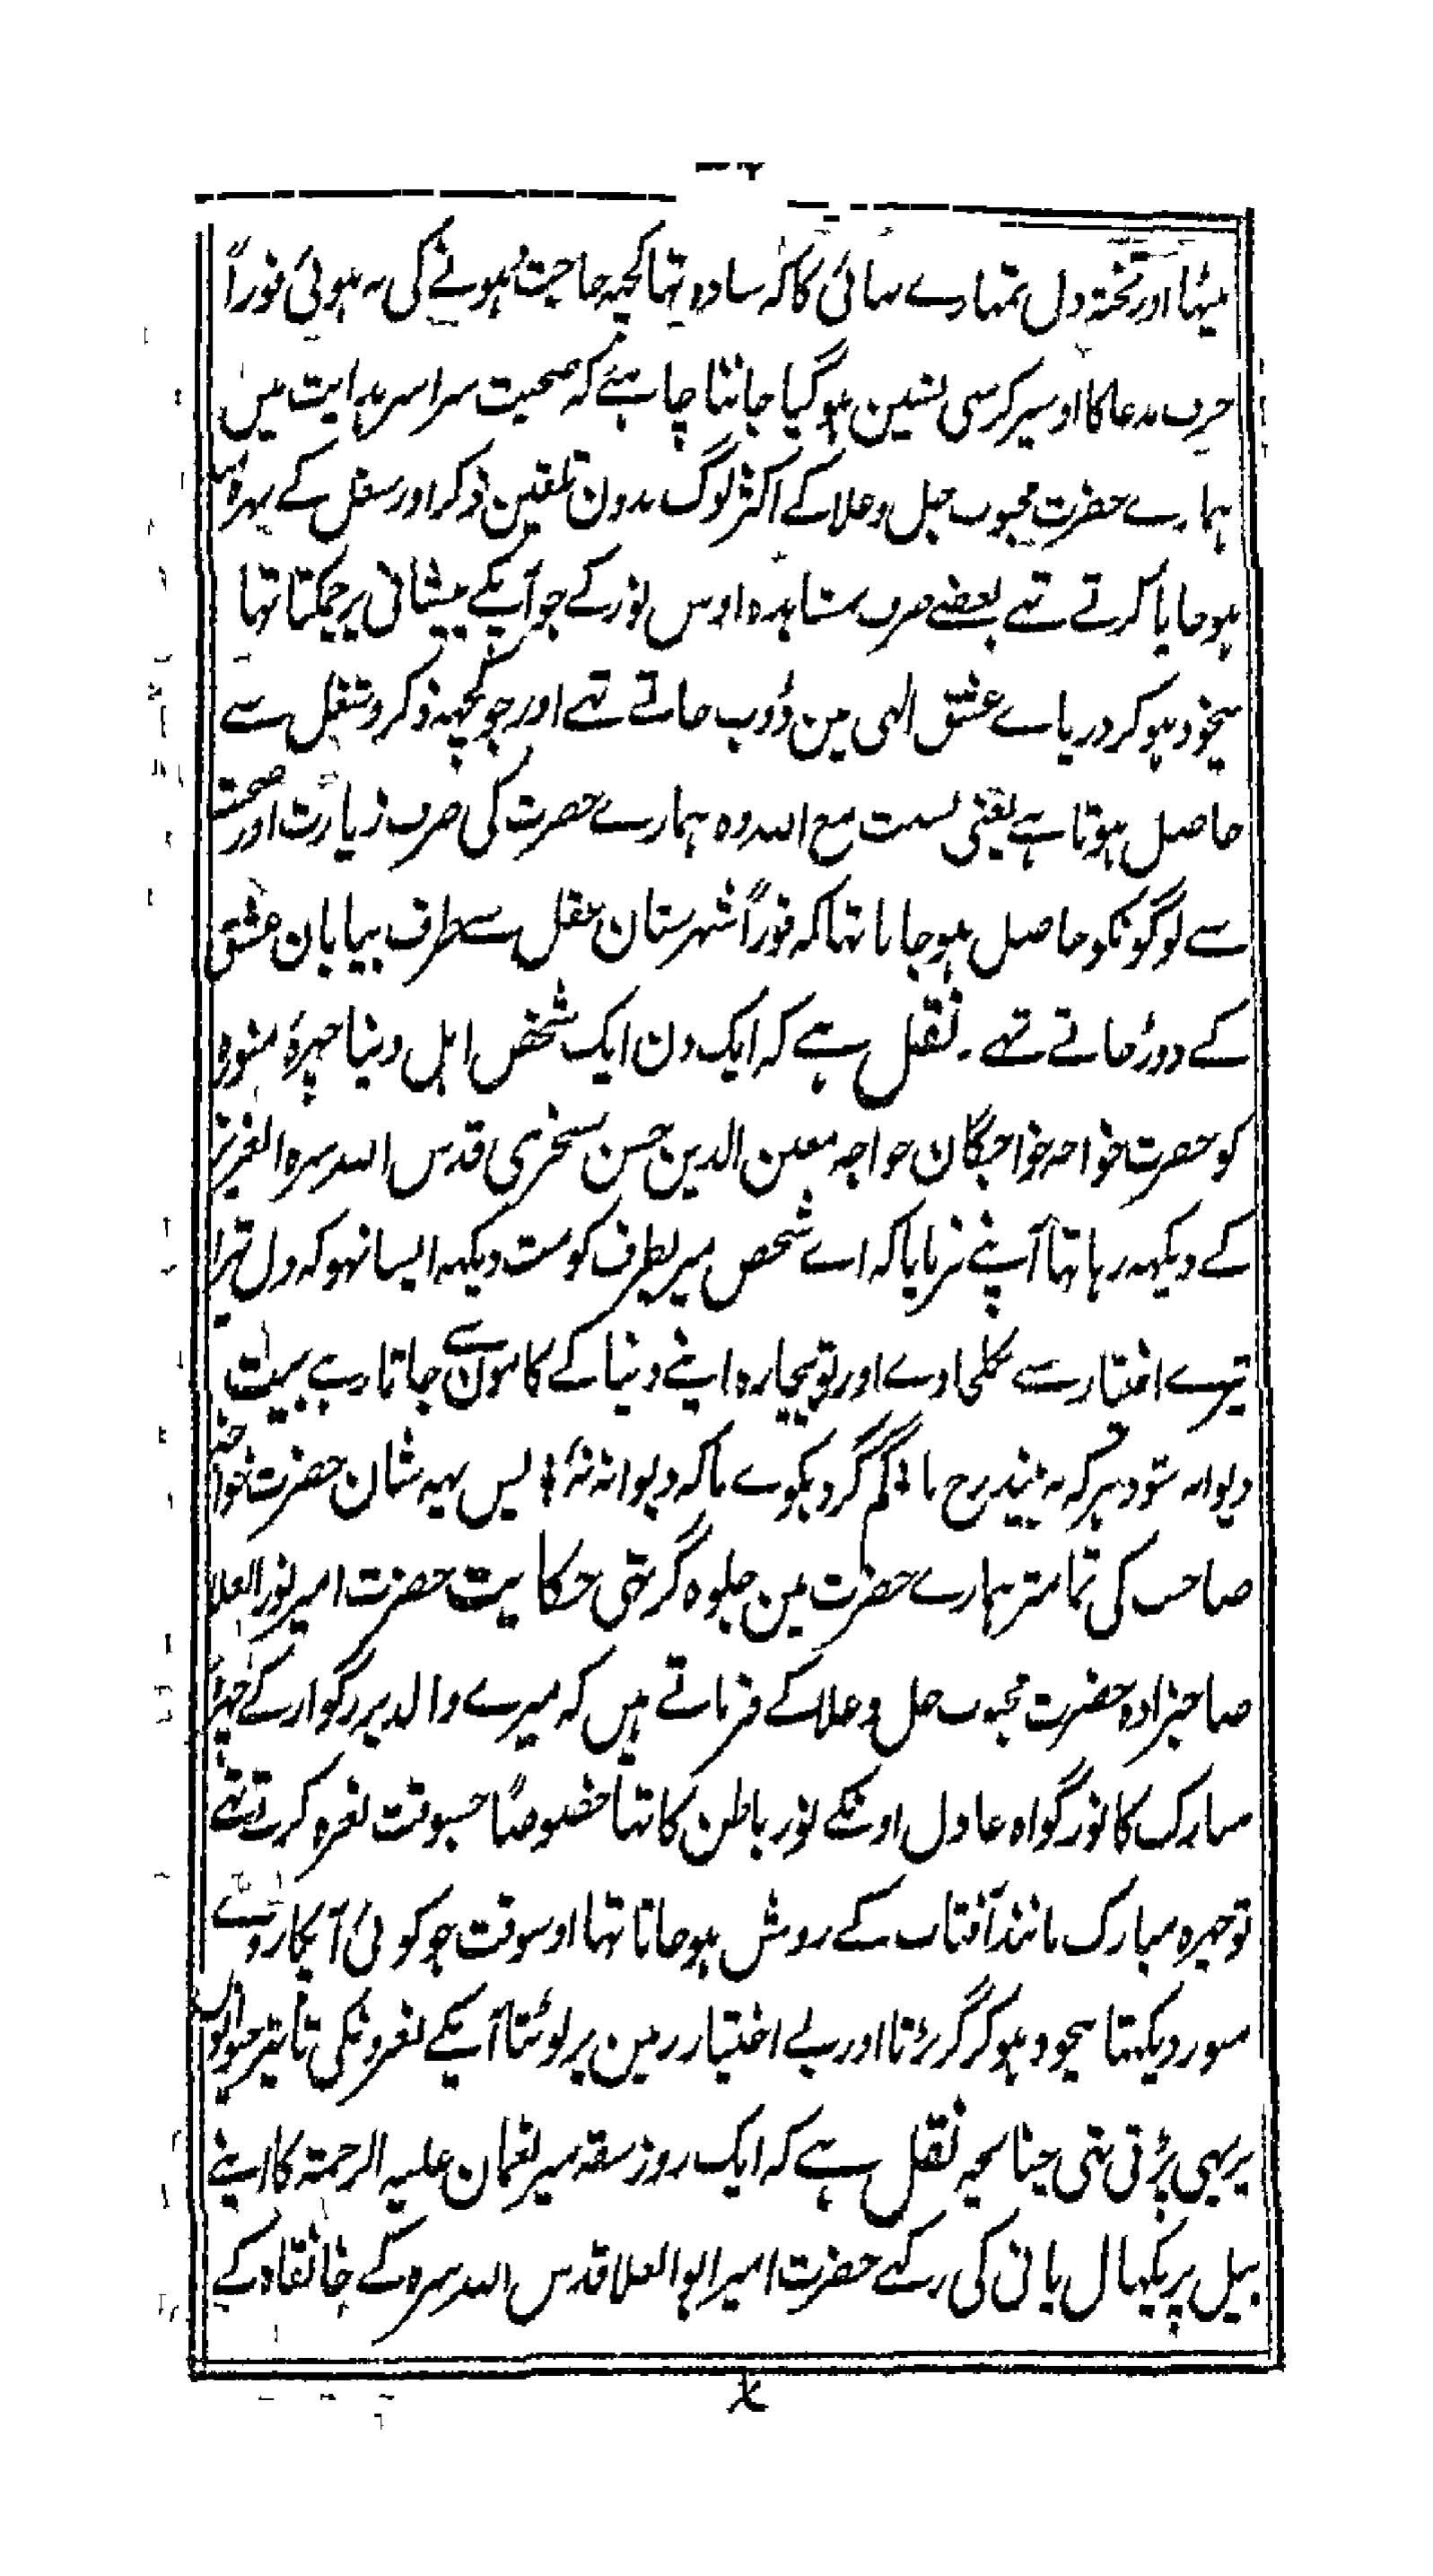 میٹھا اور تختہ دل تمہارے بھائی کا کہ سادہ تھا کچھہ حاجت ہونے کی نہ ہوئی فوراً
حرف مدعا کا اوسپر کرسی نشین ہو گیا جاننا چاہئے کہ صحبت سراسر ہدایت میں
ہمارے حضرت محبوب جل وعلا کے اکثر لوگ بدون تلقین ذکر اور شغل کے بہرہ
ہو جایا کرتے تھے بعضے صرف مشاہدہ اوس نور کے جو آپکے پیشانی پر چمکتا تھا
بیخود ہو کر دریاے عشق الہی مین ڈوب جاتے تھے اور جو کچھہ ذکر و شغل سے
حاصل ہوتا ہے یعنی نسبت مع اللہ وہ ہمارے حضرت کی صرف زیارت اور صحبت
سے لوگونکو حاصل ہو جاتا تھا کہ فوراً شہرستان عقل سے طرف بیابان عشق
کے دوڑ جاتے تھے ۔ نقل ہے کہ ایک دن ایک شخص اہل دنیا چہرۂ منورہ
کو حضرت خواجہ خواجگان خواجہ معین الدین حسن سنجری قدس اللہ سرہ العزیز
کے دیکھہ رہا تھا آپنے فرمایا کہ اے شخص میریطرف کو مت دیکھہ ایسا نہو کہ دل تیرا
تیرے اختیار سے نکلجاوے اور تو بیچارہ اپنے دنیا کے کامون سے جاتا رہے بیت
دیوانہ شود ہر کہ بہ بیند رخ ما ؛ گم گرد بکوے ما کہ دیوانہ نۂ ؛ پس یہہ شان حضرت خواجہ
صاحب کی تمامتر ہمارے حضرت مین جلوہ گر تھی حکایت حضرت امیر نور العلا
صاحبزادہ حضرت محبوب جل وعلا کے فرماتے ہیں کہ میرے والد بزرگوار کے چہرۂ
مبارک کا نور گواہ عادل اونکے نور باطن کا تھا خصوصاً جسوقت نعرہ کرتے تھے
تو چہرہ مبارک مانند آفتاب کے روشن ہو جاتا تھا اوسوقت جو کوئی آپکا روے
منور دیکھتا بیخود ہو کر گر پڑتا اور بے اختیار زمین پر لوٹتا آپکے نعرونکی تاثیر حیوانون
پر بھی پڑتی تھی چنانچہ نقل ہے کہ ایک روز سقہ میر نعمان علیہ الرحمۃ کا اپنے
بیل پر پکھال پانی کی رکھے حضرت امیر ابو العلا قدس اللہ سرہ کے خانقاہ کے